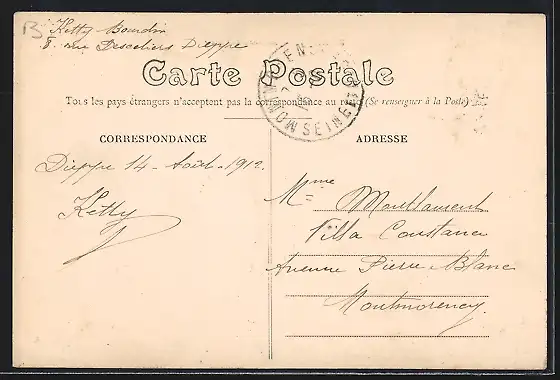 B Ketty Bourdin
8. rue Desceliers Dieppe
Carte Postale
Tous les pays étrangers n'acceptent pas la correspondance au recto (Se renseigner à la Poste)
CORRESPONDANCE
ADRESSE
Dieppe 14 - Août - 1912.
Ketty
Mme Montlaurent
Villa Constance
Avenue Pierre Blanc
Montmorency.